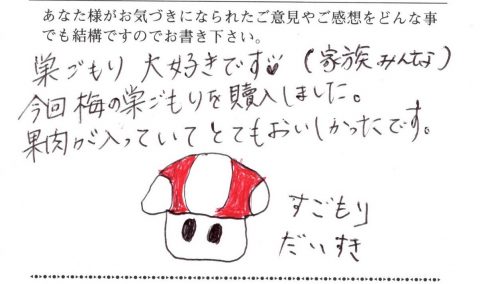 あなた様がお気づきになられたご意見やご感想をどんな事
でも結構ですのでお書き下さい。
巣ごもり 大好きです♥(家族みんな)
今回梅の巣ごもりを購入しました。
果肉が入っていてとてもおいしかったです。
すごもり
だいすき